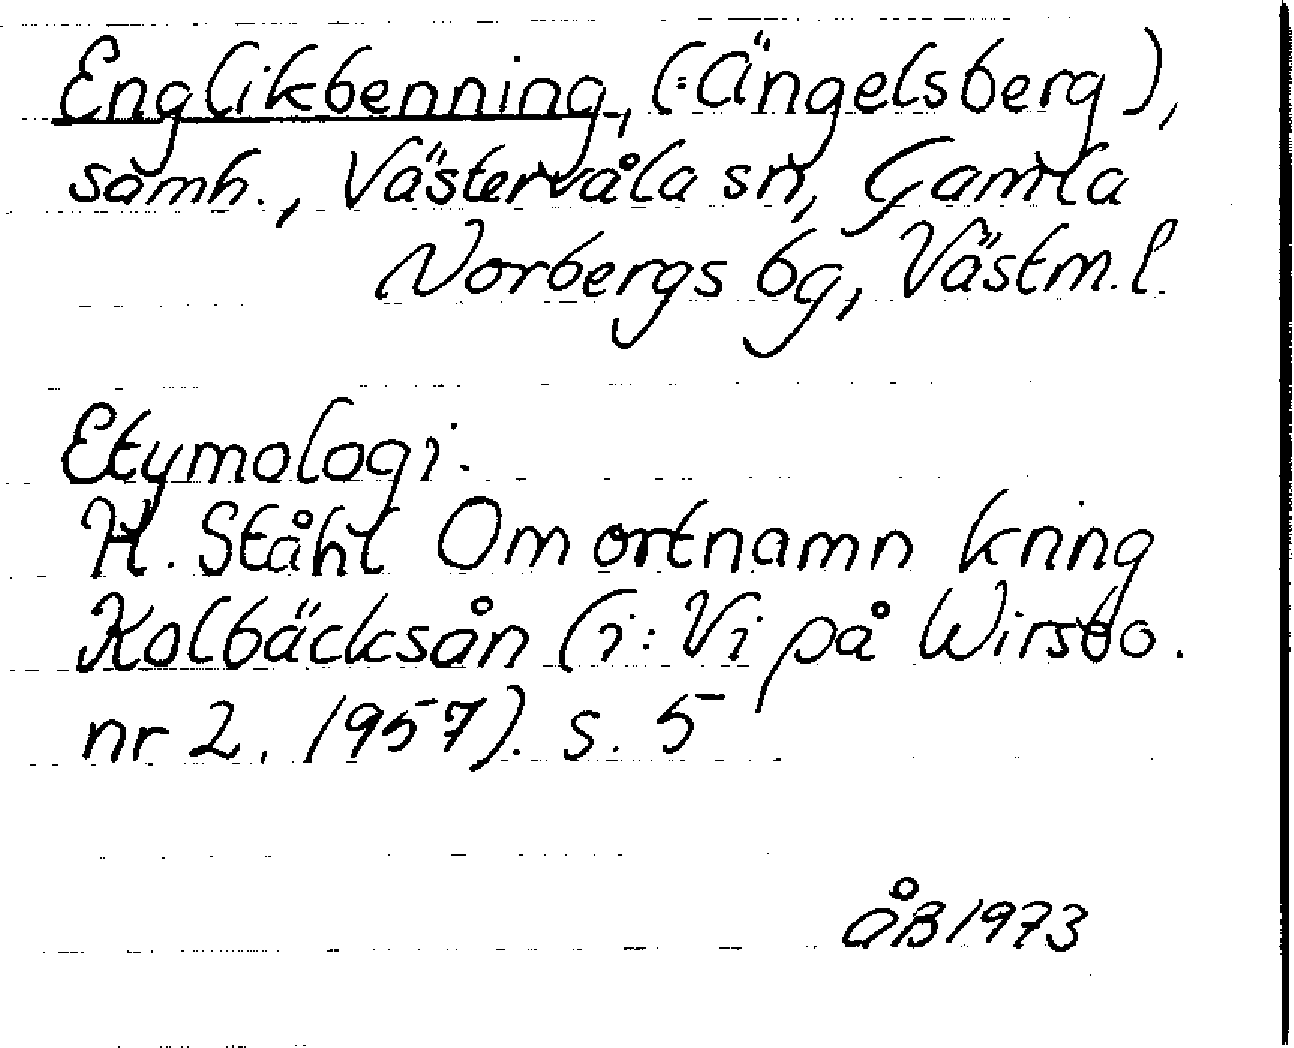 Englikbenning, (:Ängelsberg),
samh., Västervåla sn, Gamla
Norbergs bg, Västm.l.
Etymologi.
H. Ståhl Om ortnamn kring
Kolbäcksån (i: Vi på Wirsbo.
nr 2. 1957). s. 5
åB 1973